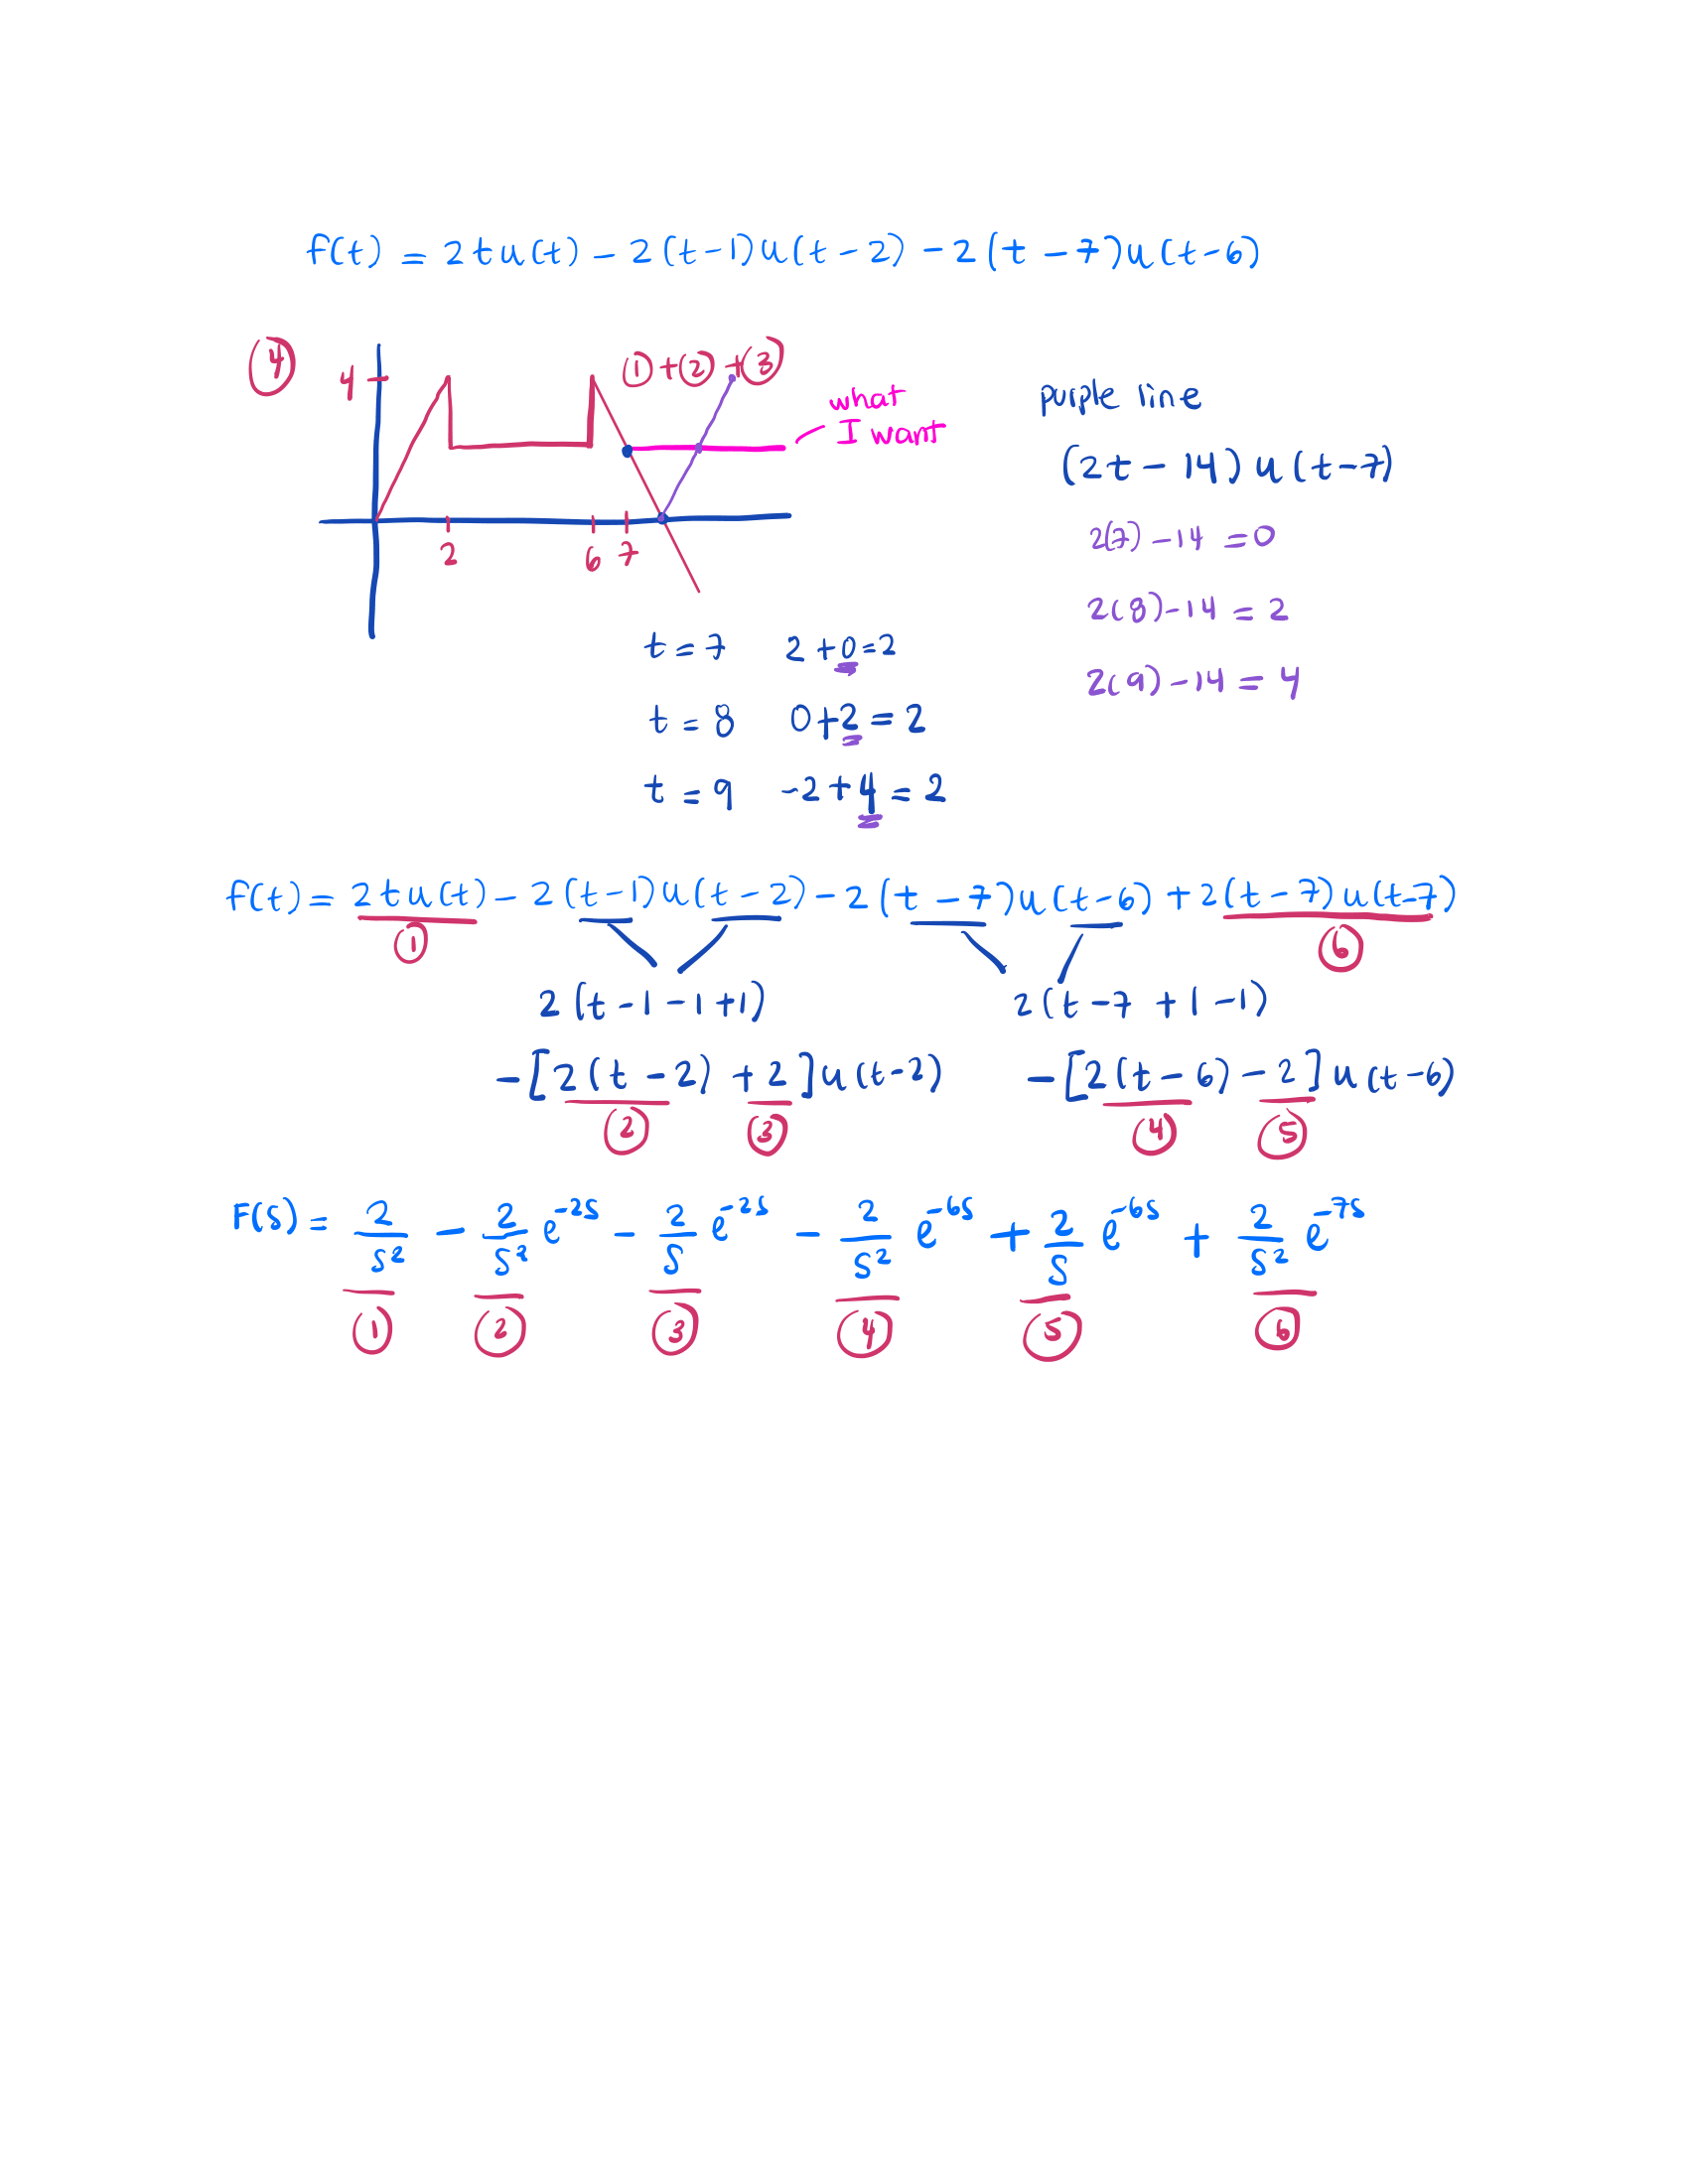 f(t) = 2tu(t) - 2(t-1)u(t-2) - 2(t-7)u(t-6)
④
4
①+②+③
what
I want
2 6 7
purple line
(2t-14)u(t-7)
2(7)-14=0
2(8)-14=2
2(9)-14=4
t=7 2+0=2
t=8 0+2=2
t=9 -2+4=2
f(t) = 2tu(t) - 2(t-1)u(t-2) - 2(t-7)u(t-6) + 2(t-7)u(t-7)
① ⑥
2(t-1-1+1) 2(t-7+1-1)
-[2(t-2)+2]u(t-2) -[2(t-6)-2]u(t-6)
② ③ ④ ⑤
F(s) = 2/s² - 2/s² e^-2s - 2/s e^-2s - 2/s² e^-6s + 2/s e^-6s + 2/s² e^-7s
① ② ③ ④ ⑤ ⑥